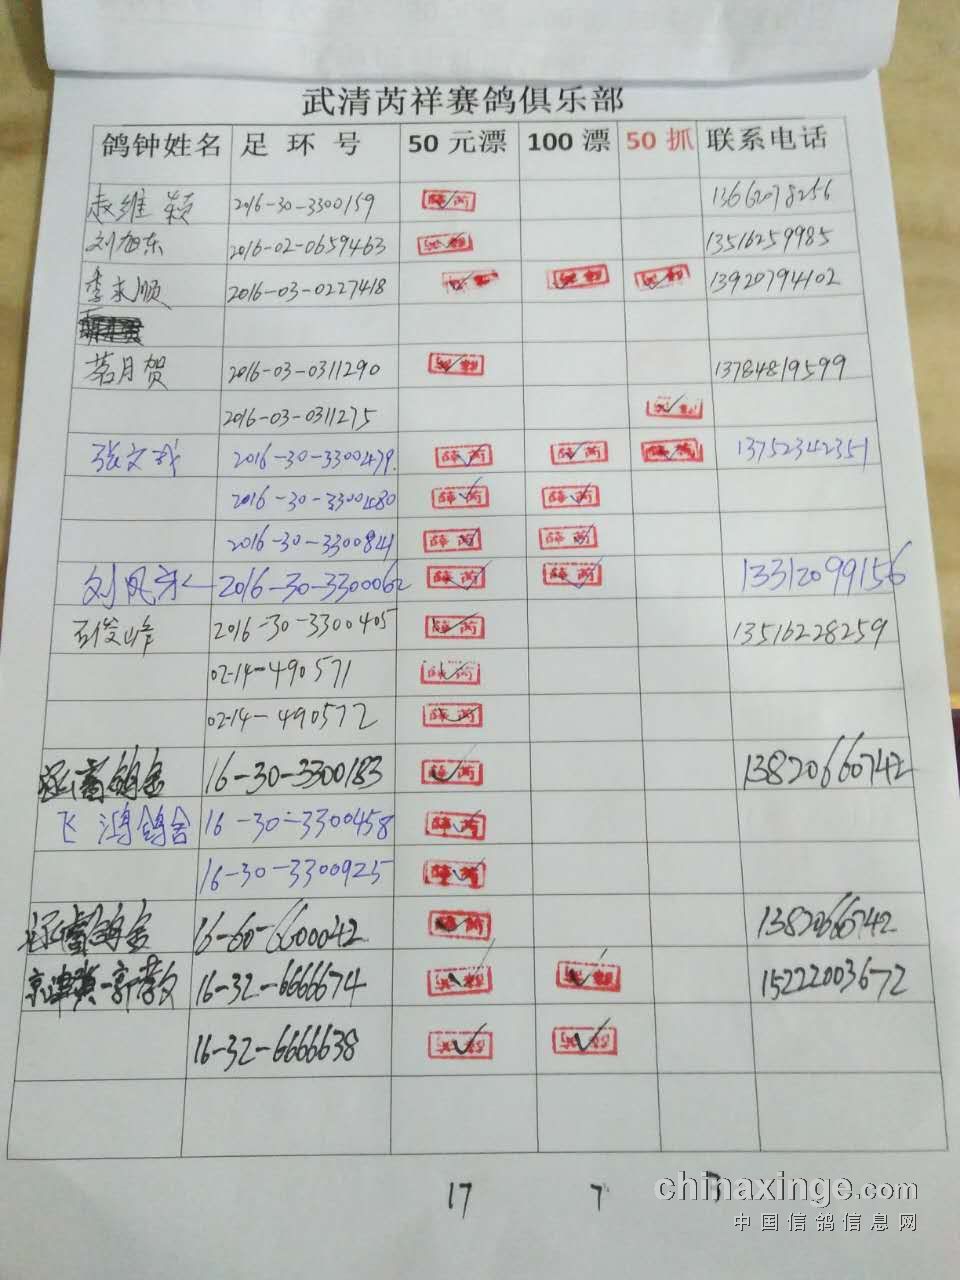 武清芮祥赛鸽俱乐部
鸽钟姓名 足环号 50元漂 100漂 50抓 联系电话
赵维颖 2016-30-3300159 薛芮 13662078256
刘旭东 2016-02-0659463 13516259985
李来顺 2016-03-0227418 13920794102
茗月贺 2016-03-0311290 13784819599
2016-03-0311275
张文武 2016-30-3300479 薛芮 薛芮 薛芮 13752342351
2016-30-3300480 薛芮 薛芮
2016-30-3300841 薛芮 薛芮
刘凤 2016-30-3300062 薛芮 薛芮 13312099156
石俊峰 2016-30-3300405 薛芮 13516228259
02-14-490571 薛芮
02-14-490572 薛芮
鸽舍 16-30-3300183 薛芮 13820660742
飞鸿鸽舍 16-30-3300458 薛芮
16-30-3300925 薛芮
鸽舍 16-60-6600042 薛芮 13820660742
京津冀-郭 16-32-6666674 15222003672
16-32-6666638
17 7 3
chinaxinge.com
中国信鸽信息网